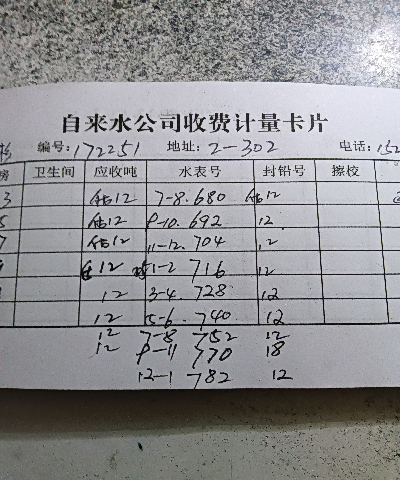 自来水公司收费计量卡片
编号:172251 地址: 2-302 电话: 152
房 卫生间 应收吨 水表号 封铅号 擦校
3 估12 7-8.680 估12
5 估12 9-10.692 12
7 估12 11-12.704 12
12 1-2 716 12
12 3-4.728 12
12 5-6.740 12
12 7-8 752 12
12 9-11 770 18
12-1 782 12